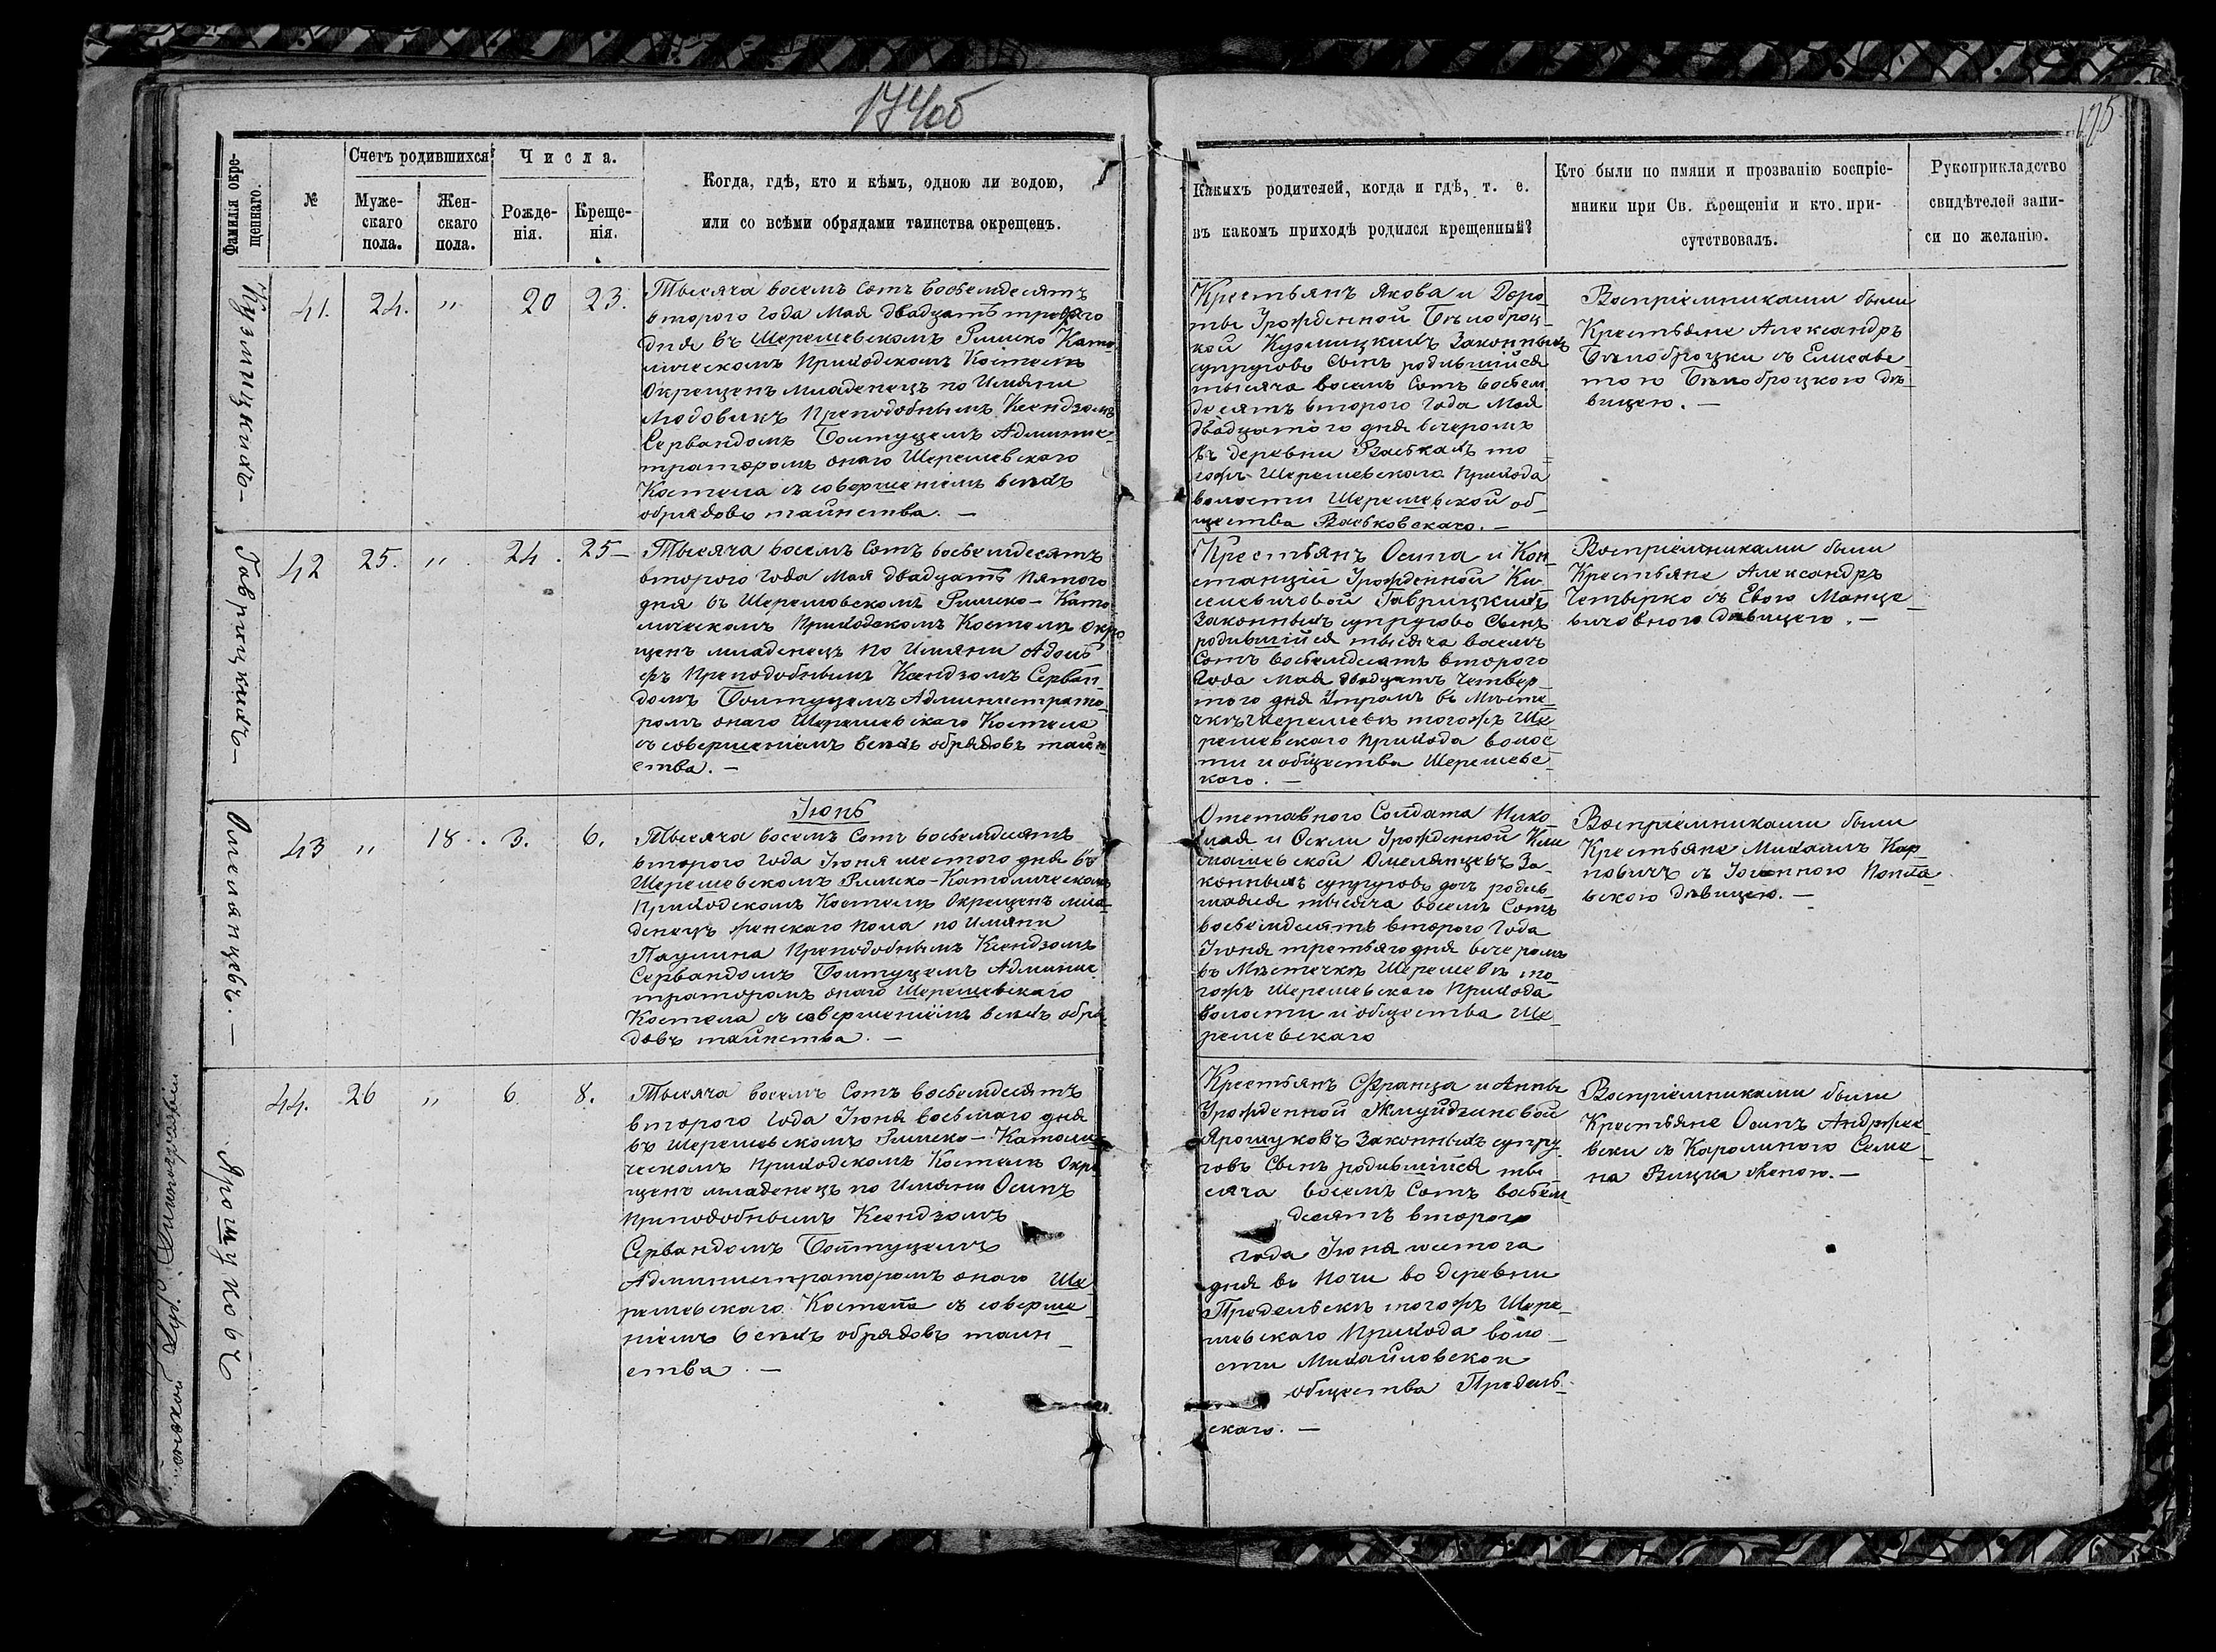 174об
175
Фамилія окре-
щеннаго.
№
Счетъ родившихся
Муже-
скаго
пола.
Жен-
скаго
пола.
Числа.
Рожде-
нія.
Креще-
нія.
Когда, гдѣ, кто и кѣмъ, одною ли водою,
или со всѣми обрядами таинства окрещенъ.
Какихъ родителей, когда и гдѣ, т. е.
въ какомъ приходѣ родился крещенный?
Кто были по имяни и прозванію воспріе-
мники при Св. Крещеніи и кто при-
сутствовалъ.
Рукоприкладство
свидѣтелей запи-
си по желанію.
Кузмицкихъ
41. 24. „ 20 23.
Тысяча восемъ сотъ восьемдесятъ
второго года Мая двадцать третяго
дня въ Шерешевскомъ Римско Като-
лическомъ Приходскомъ Костелѣ
Окрещенъ младенецъ по Имяни
Людовикъ Преподобнымъ Ксендзомъ
Сервандомъ Болтуцемъ Админис-
траторомъ онаго Шерешевскаго
Костела съ совершеніемъ всѣхъ
обрядовъ таинства. —
Крестьянъ Якова и Доро-
ты Урожденной Бѣлоброц-
кой Кузмицкихъ Законныхъ
супруговъ Сынъ родившійся
тысяча восемъ сотъ восьем-
десятъ второго года Мая
двадцатого дня вечеромъ
въ деревни Васькахъ то-
гожъ Шерешевскаго Прихода
волости Шерешевской об-
щества Васьковскаго. —
Воспріемниками были
Крестьяне Александръ
Бѣлоброцки съ Елисаве-
тою Бѣлоброцкою дѣ-
вицею. —
Гаврицкихъ
42 25. „ 24. 25 —
Тысяча восемъ сотъ восьемдесятъ
второго года Мая двадцать Пятого
дня въ Шерешовскомъ Римско-Като-
лическомъ Приходскомъ Костелѣ Окре
щенъ младенецъ по Имяни Адоль
фъ Преподобнымъ Ксендзомъ Серван-
домъ Болтуцемъ Администрато-
ромъ онаго Шерешевскаго Костела
съ совершеніемъ всѣхъ обрядовъ таин-
ства. —
Крестьянъ Осипа и Кон-
станціи Урожденной Ки-
селевичовой Гаврицкихъ
Законныхъ супруговъ Сынъ
родившійся тысяча восемъ
Сотъ восьемдесятъ второго
года Мая двадцать четвер-
того дня Утромъ въ Мѣсте-
чкѣ Шерешевѣ тогожъ Ше-
решевскаго Прихода волос-
ти и общества Шерешевс-
каго. —
Воспріемниками были
Крестьяне Александръ
Четырко съ Евою Манце-
вичовною Дѣвицею. —
Омелянцевъ. —
Іюнь
43 „ 18. 3. 6.
Тысяча восемъ Сотъ восьемдесятъ
второго года Іюня шестого дня въ
Шерешевскомъ Римско-Католическомъ
Приходскомъ Костелѣ Окрещенъ мла-
денецъ женскаго пола по Имяни
Паулина Преподобнымъ Ксендзомъ
Сервандомъ Болтуцемъ Админис-
траторомъ онаго Шерешевскаго
Костела съ совершеніемъ всѣхъ обря-
довъ таинства. —
Отставного Солдата Нико-
лая и Текли Урожденной Кли
машевской Омелянцевъ За-
конныхъ супруговъ дочь родив-
шаяся тысяча восемъ Сотъ
восьемдесятъ второго года
Іюня третьяго дня вечеромъ
въ Мѣстечкѣ Шерешевѣ то-
гожъ Шерешевскаго Прихода
волости и общества Ше-
решевскаго
Воспріемниками были
Крестьяне Михаилъ Кар-
повичъ съ Іоанною
Дѣвицею. —
Ярошуковъ
44. 26 „ 6 8.
Тысяча восемъ Сотъ восьемдесятъ
второго года Іюня восьмаго дня
въ Шерешевскомъ Римско-Католи-
ческомъ Приходскомъ Костелѣ Окре-
щенъ младенецъ по Имяни Осипъ
Преподобнымъ Ксендзомъ
Сервандомъ Болтуцемъ
Администраторомъ онаго Ше-
решевскаго Костела съ соверше-
ніемъ всѣхъ обрядовъ таин-
ства. —
Крестьянъ Франца и Анны
Урожденной Жмуйдзиновой
Ярошуковъ Законныхъ супру-
говъ Сынъ родившійся ты-
сяча восемъ Сотъ восьем-
десятъ второго
года Іюня шестого
дня въ Ночи во деревни
Предѣльскѣ тогожъ Шере-
шевскаго Прихода воло-
сти Михайловской
общества Предѣль-
скаго. —
Воспріемниками были
Крестьяне Осипъ Андржее-
вски съ Каролиною Семе-
на Вицка женою. —